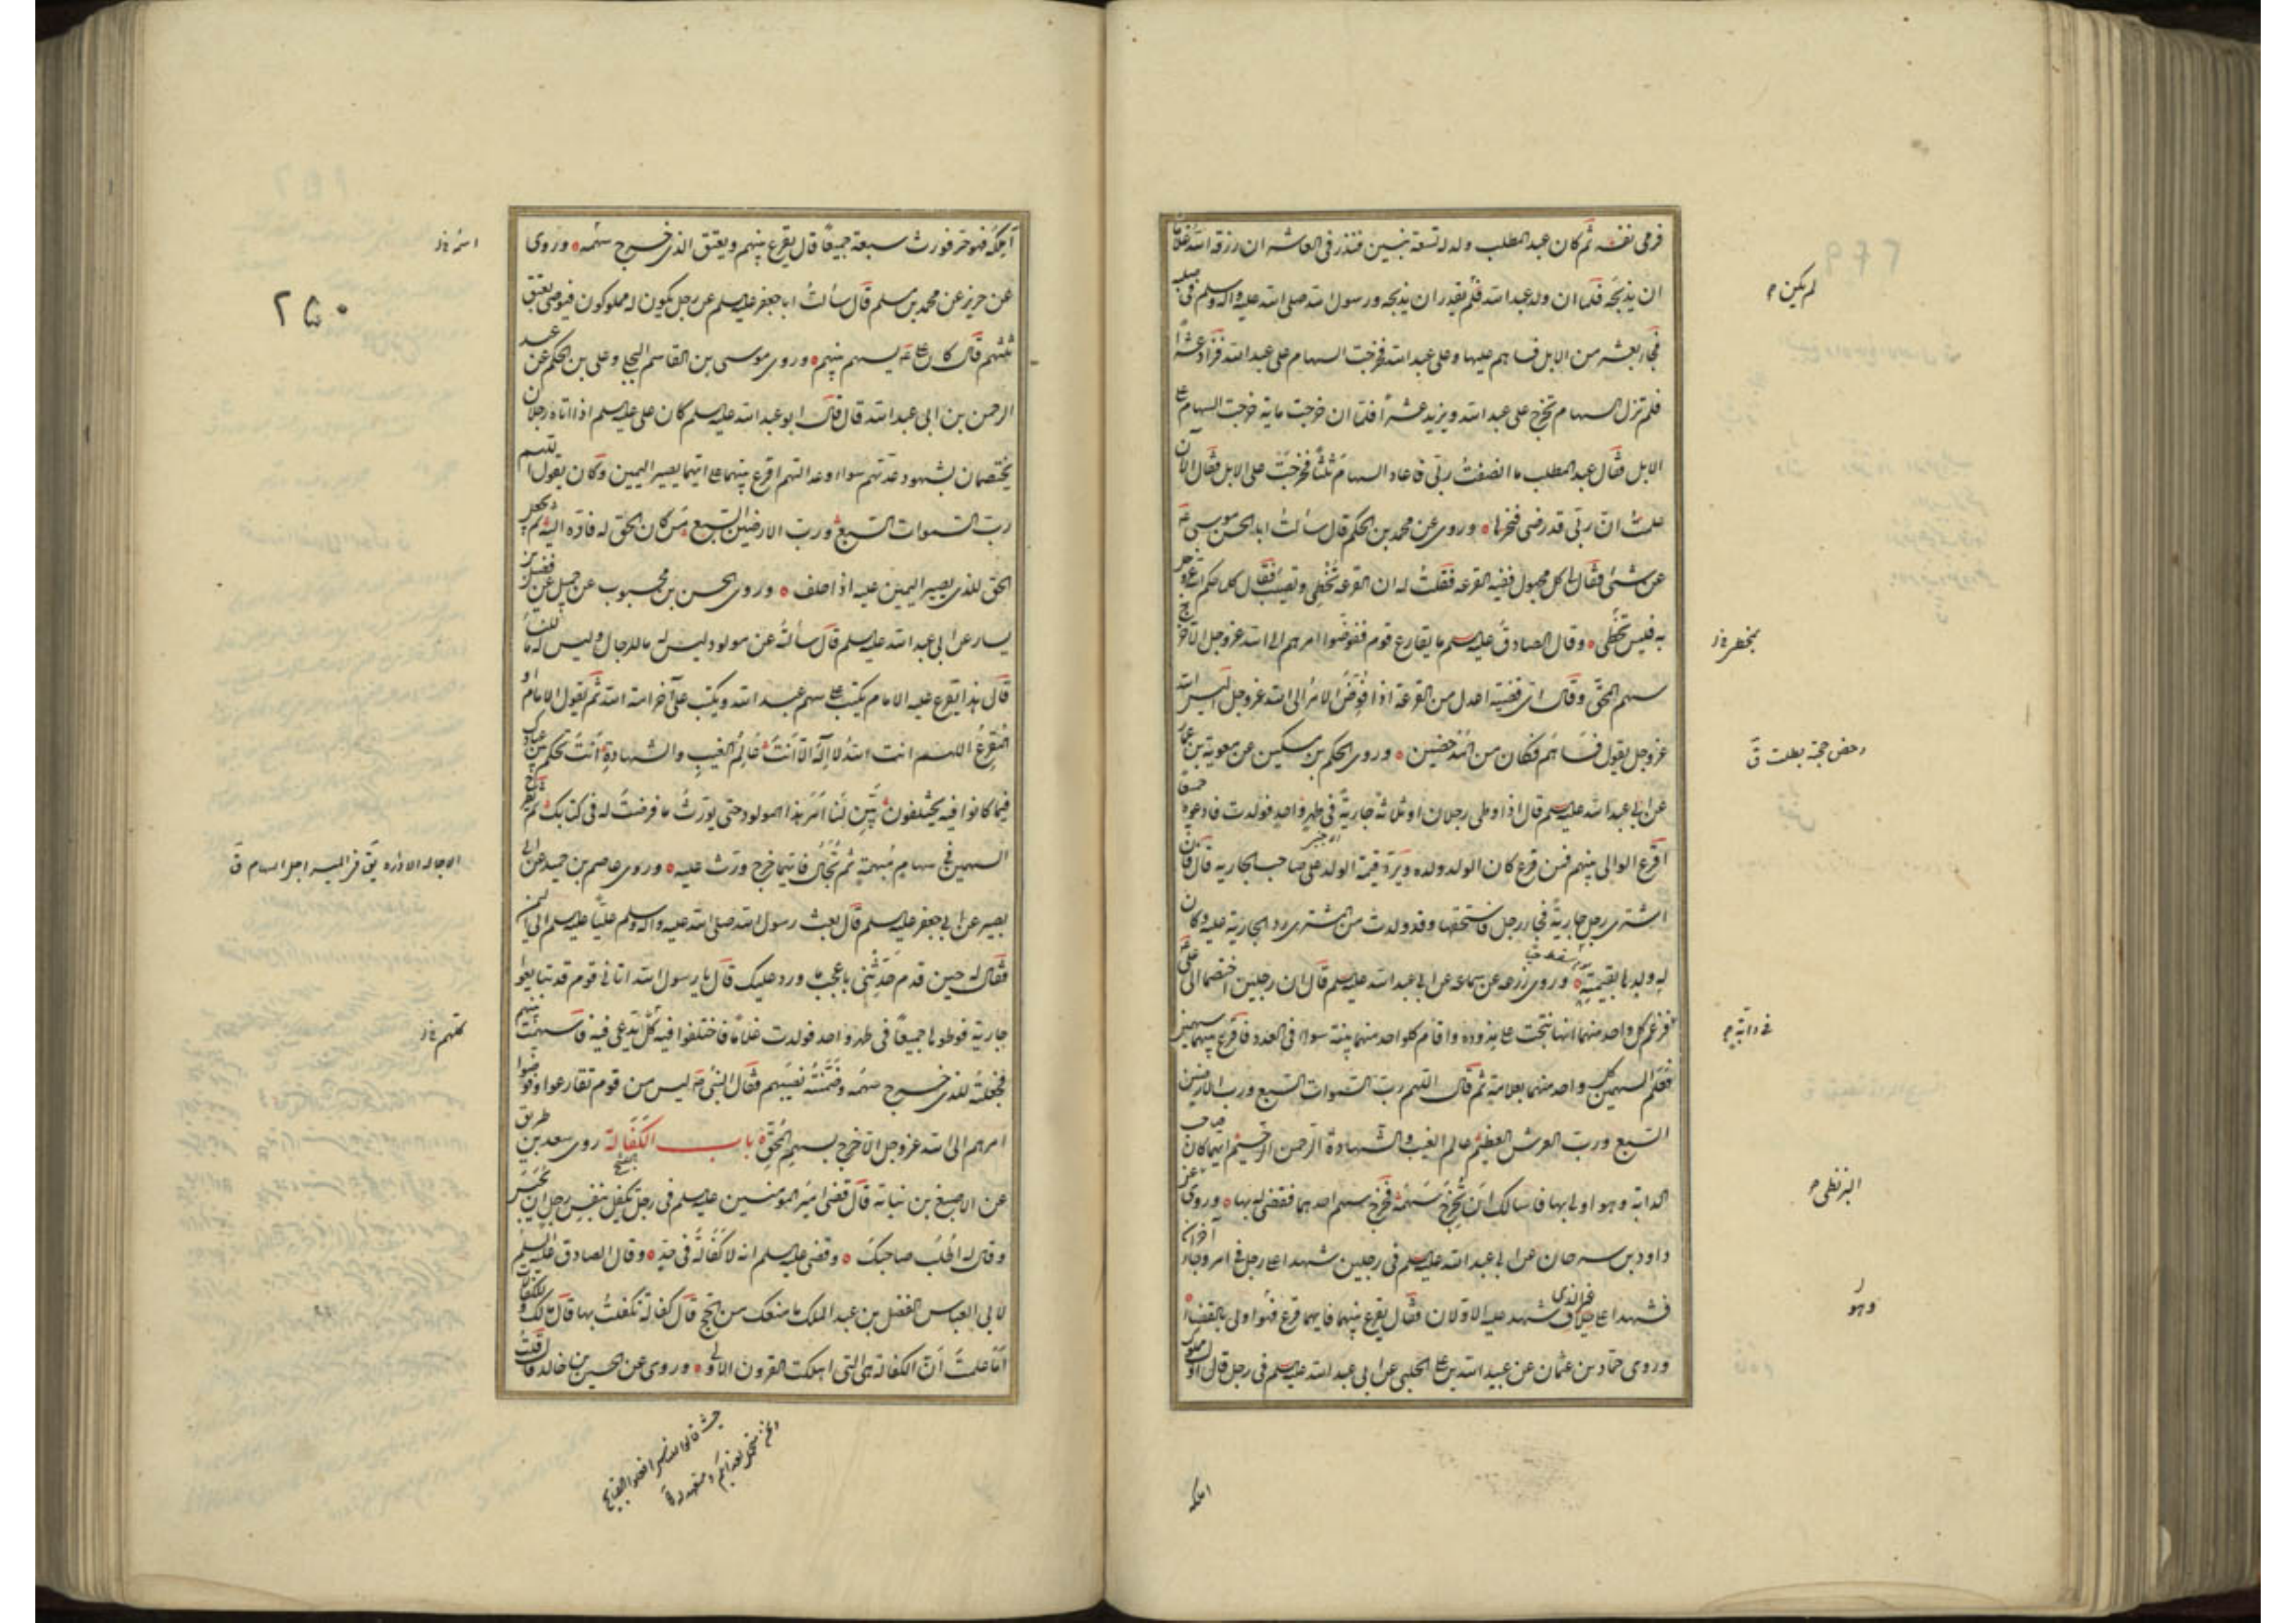 فرمى نفسه ثم كان عبد المطلب ولد له تسعة بنين فنذر فى العاشر ان رزقه الله غلاما
ان يذبحه فلما ان ولد عبد الله فلم يقدر ان يذبحه ورسول الله صلى الله عليه واله وسلم فى صلبه
فجاء بعشر من الابل فساهم عليها وعلى عبد الله فخرجت السهام على عبد الله فزاد عشرا
فلم تزل السهام تخرج على عبد الله ويزيد عشرا فلما ان خرجت ماية خرجت السهام على
الابل فقال عبد المطلب ما انصفت ربى فاعاد السهام ثلثا فخرجت على الابل فقال الان
علمت ان ربى قد رضى فنحرها وروى عن محمد بن الحكم قال سألت ابا الحسن موسى
عن شىء فقال لى كل مجهول ففيه القرعه فقلت له ان القرعه تخطى وتصيب فقال كلما حكم الله عز وجل
به فليس تخطى وقال الصادق عليه السلم ما يقارع قوم ففوضوا امرهم الى الله عز وجل الا خرج
سهم المحق وقال اى قضية اعدل من القرعة اذا فوض الامر الى الله عز وجل اليس الله
عز وجل يقول فساهم فكان من المدحضين وروى الحكم بن مسكين عن معوية بن عمار
عن ابى عبد الله عليه السلم قال اذا وطى رجلان او ثلاثة جارية فى طهر واحد فولدت فادعوه جميعا
اقرع الوالى بينهم فمن قرع كان الولد ولده ويرد قيمة الولد على صاحب الجارية قال فان
اشترى رجل جارية فجاء رجل فاستحقها وقد ولدت من المشترى رد الجارية عليه وكان
له ولدها بقيمته وروى زرعه عن سماعه عن ابى عبد الله عليه السلم قال ان رجلين اختصما الى على
فزعم كل واحد منهما انها نتجت على مذوده واقام كل واحد منهما بينة سواء فى العدد فاقرع بينهما سهمين
فعلم السهمين كل واحد منهما بعلامة ثم قال اللهم رب السموات السبع ورب الارضين
السبع ورب العرش العظيم عالم الغيب والشهادة الرحمن الرحيم ايهما كان صاحب
الدابة وهو اولى بها فاسالك ان تخرج سهمه فخرج سهم احدهما فقضى له بها وروى عن
داود بن سرحان عن ابى عبد الله عليه السلم فى رجلين شهدا على رجل فى امر وجاء آخران
فشهدا على غير الذى شهد عليه الاولان فقال يقرع بينهما فايهما قرع فهو اولى بالقضاء
وروى حماد بن عثمان عن عبيد الله بن على الحلبى عن ابى عبد الله عليه السلم فى رجل قال اول مملوك
لم يكن
بخطر
دحض حجته بطلت ق
فى دابة
البزنطى
وهو
املكه
املكه فهو حر فورث سبعة جميعا قال يقرع بينهم ويعتق الذى خرج سهمه وروى
عن حريز عن محمد بن مسلم قال سألت ابا جعفر عليه السلم عن رجل يكون له مملوكون فيوصى بعتق
ثلثهم قال كان على يسهم بينهم وروى موسى بن القاسم البجلى وعلى بن الحكم عن عبد
الرحمن بن ابى عبد الله قال قال ابو عبد الله عليه السلم كان على عليه السلم اذا اتاه رجلان
يختصمان بشهود عدتهم سواء وعدالتهم اقرع بينهما على ايهما يصير اليمين وكان يقول اللهم
رب السموات السبع ورب الارضين السبع من كان الحق له فاده اليه ثم يجعل
الحق للذى يصير اليمين عليه اذا حلف وروى الحسن بن محبوب عن جميل عن فضيل بن
يسار عن ابى عبد الله عليه السلم قال سألته عن مولود ليس له ما للرجال وليس له ما للنساء
قال هذا يقرع عليه الامام يكتب على سهم عبد الله ويكتب على آخر امة الله ثم يقول الامام او
المقرع اللهم انت الله لا اله الا انت عالم الغيب والشهادة انت تحكم بين عبادك
فيما كانوا فيه يختلفون بين لنا امر هذا المولود حتى يورث ما فرضت له فى كتابك ثم يطرح
السهمين فى سهام مبهمة ثم تجال فايهما خرج ورث عليه وروى عاصم بن حميد عن ابى
بصير عن ابى جعفر عليه السلم قال بعث رسول الله صلى الله عليه واله وسلم عليا عليه السلم الى اليمن
فقال له حين قدم حدثنى باعجب ما ورد عليك قال يا رسول الله اتانى قوم قد تبايعوا
جارية فوطوها جميعا فى طهر واحد فولدت غلاما فاختلفوا فيه كل يدعى فيه فاسهمت بينهم
فجعلته للذى خرج سهمه وضمنته نصيبهم فقال النبى ص ليس من قوم تقارعوا وفوضوا
امرهم الى الله عز وجل الا خرج سهم المحق باب الكفالة روى سعد بن طريف
عن الاصبغ بن نباتة قال قضى امير المومنين عليه السلم فى رجل تكفل بنفس رجل ان يحبس
وقال له اطلب صاحبك وقضى عليه السلم انه لا كفالة فى حد وقال الصادق عليه السلم
لابى العباس الفضل بن عبد الملك ما منعك من الحج قال كفالة تكفلت بها قال مالك وللكفالات
اما علمت ان الكفالة هى التى اهلكت القرون الاولى وروى عن الحسين بن خالد قال قلت
٢٥٠